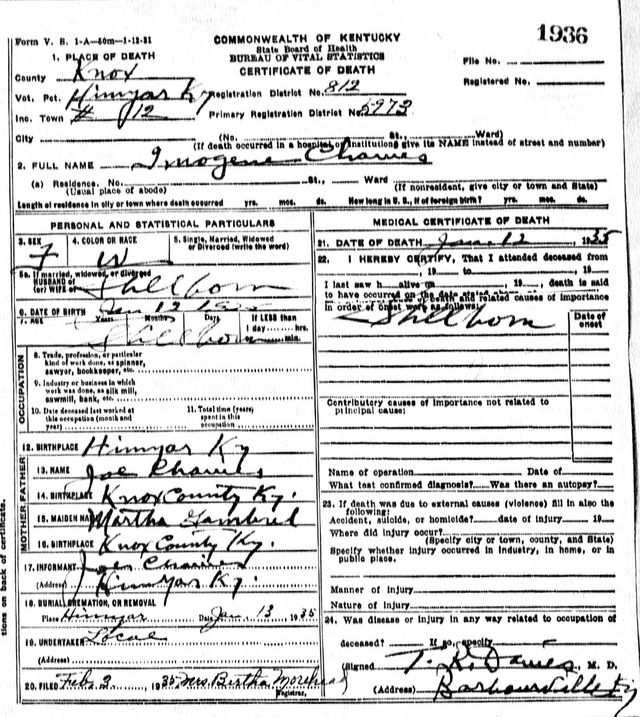 1936
Form V. S. 1-A—50m—1-12-31
COMMONWEALTH OF KENTUCKY
State Board of Health
BUREAU OF VITAL STATISTICS
CERTIFICATE OF DEATH
1. PLACE OF DEATH
County Knox
Vot. Pct. Himyar Ky
Inc. Town # 12
Registration District No. 812
Primary Registration District No. 5973
File No.
Registered No.
City (No. St., Ward)
(If death occurred in a hospital or institution, give its NAME instead of street and number)
2. FULL NAME Imogene
(a) Residence. No. St., Ward
(Usual place of abode) (If nonresident, give city or town and State)
Length of residence in city or town where death occurred yrs. mos. ds. How long in U. S., if of foreign birth? yrs. mos. ds.
PERSONAL AND STATISTICAL PARTICULARS
3. SEX F
4. COLOR OR RACE W
5. Single, Married, Widowed or Divorced (write the word)
5a. If married, widowed, or divorced
HUSBAND of
(or) WIFE of Stillborn
6. DATE OF BIRTH Jan 12
7. AGE Years Months Days If LESS than
1 day hrs.
min.
Stillborn
OCCUPATION
8. Trade, profession, or particular
kind of work done, as spinner,
sawyer, bookkeeper, etc.
9. Industry or business in which
work was done, as silk mill,
sawmill, bank, etc.
10. Date deceased last worked at
this occupation (month and
year)
11. Total time (years)
spent in this
occupation
12. BIRTHPLACE Himyar Ky
FATHER
13. NAME Joe
14. BIRTHPLACE Knox County Ky.
MOTHER
15. MAIDEN NAME Martha Gambrel
16. BIRTHPLACE Knox County Ky.
17. INFORMANT Joe
(Address) Himyar Ky.
18. BURIAL, CREMATION, OR REMOVAL
Place Himyar Date Jan. 13 1935
19. UNDERTAKER Local
(Address)
20. FILED Feb 3 1935 Mrs Birtha Morehead
Registrar.
MEDICAL CERTIFICATE OF DEATH
21. DATE OF DEATH Jan. 12, 1935
22. I HEREBY CERTIFY, That I attended deceased from
, 19 to , 19
I last saw h alive on , 19 , death is said
to have occurred on the date stated above
of death and related causes of importance
in order of onset were as follows:
Date of
onset
Stillborn
Contributory causes of importance not related to
principal cause:
Name of operation Date of
What test confirmed diagnosis? Was there an autopsy?
23. If death was due to external causes (violence) fill in also the
following:
Accident, suicide, or homicide? date of injury 19
Where did injury occur?
(Specify city or town, county, and State)
Specify whether injury occurred in industry, in home, or in
public place.
Manner of injury
Nature of injury
24. Was disease or injury in any way related to occupation of
deceased? If so, specify
(Signed T. R. Davies, M. D.
(Address) Barbourville Ky
tions on back of certificate.